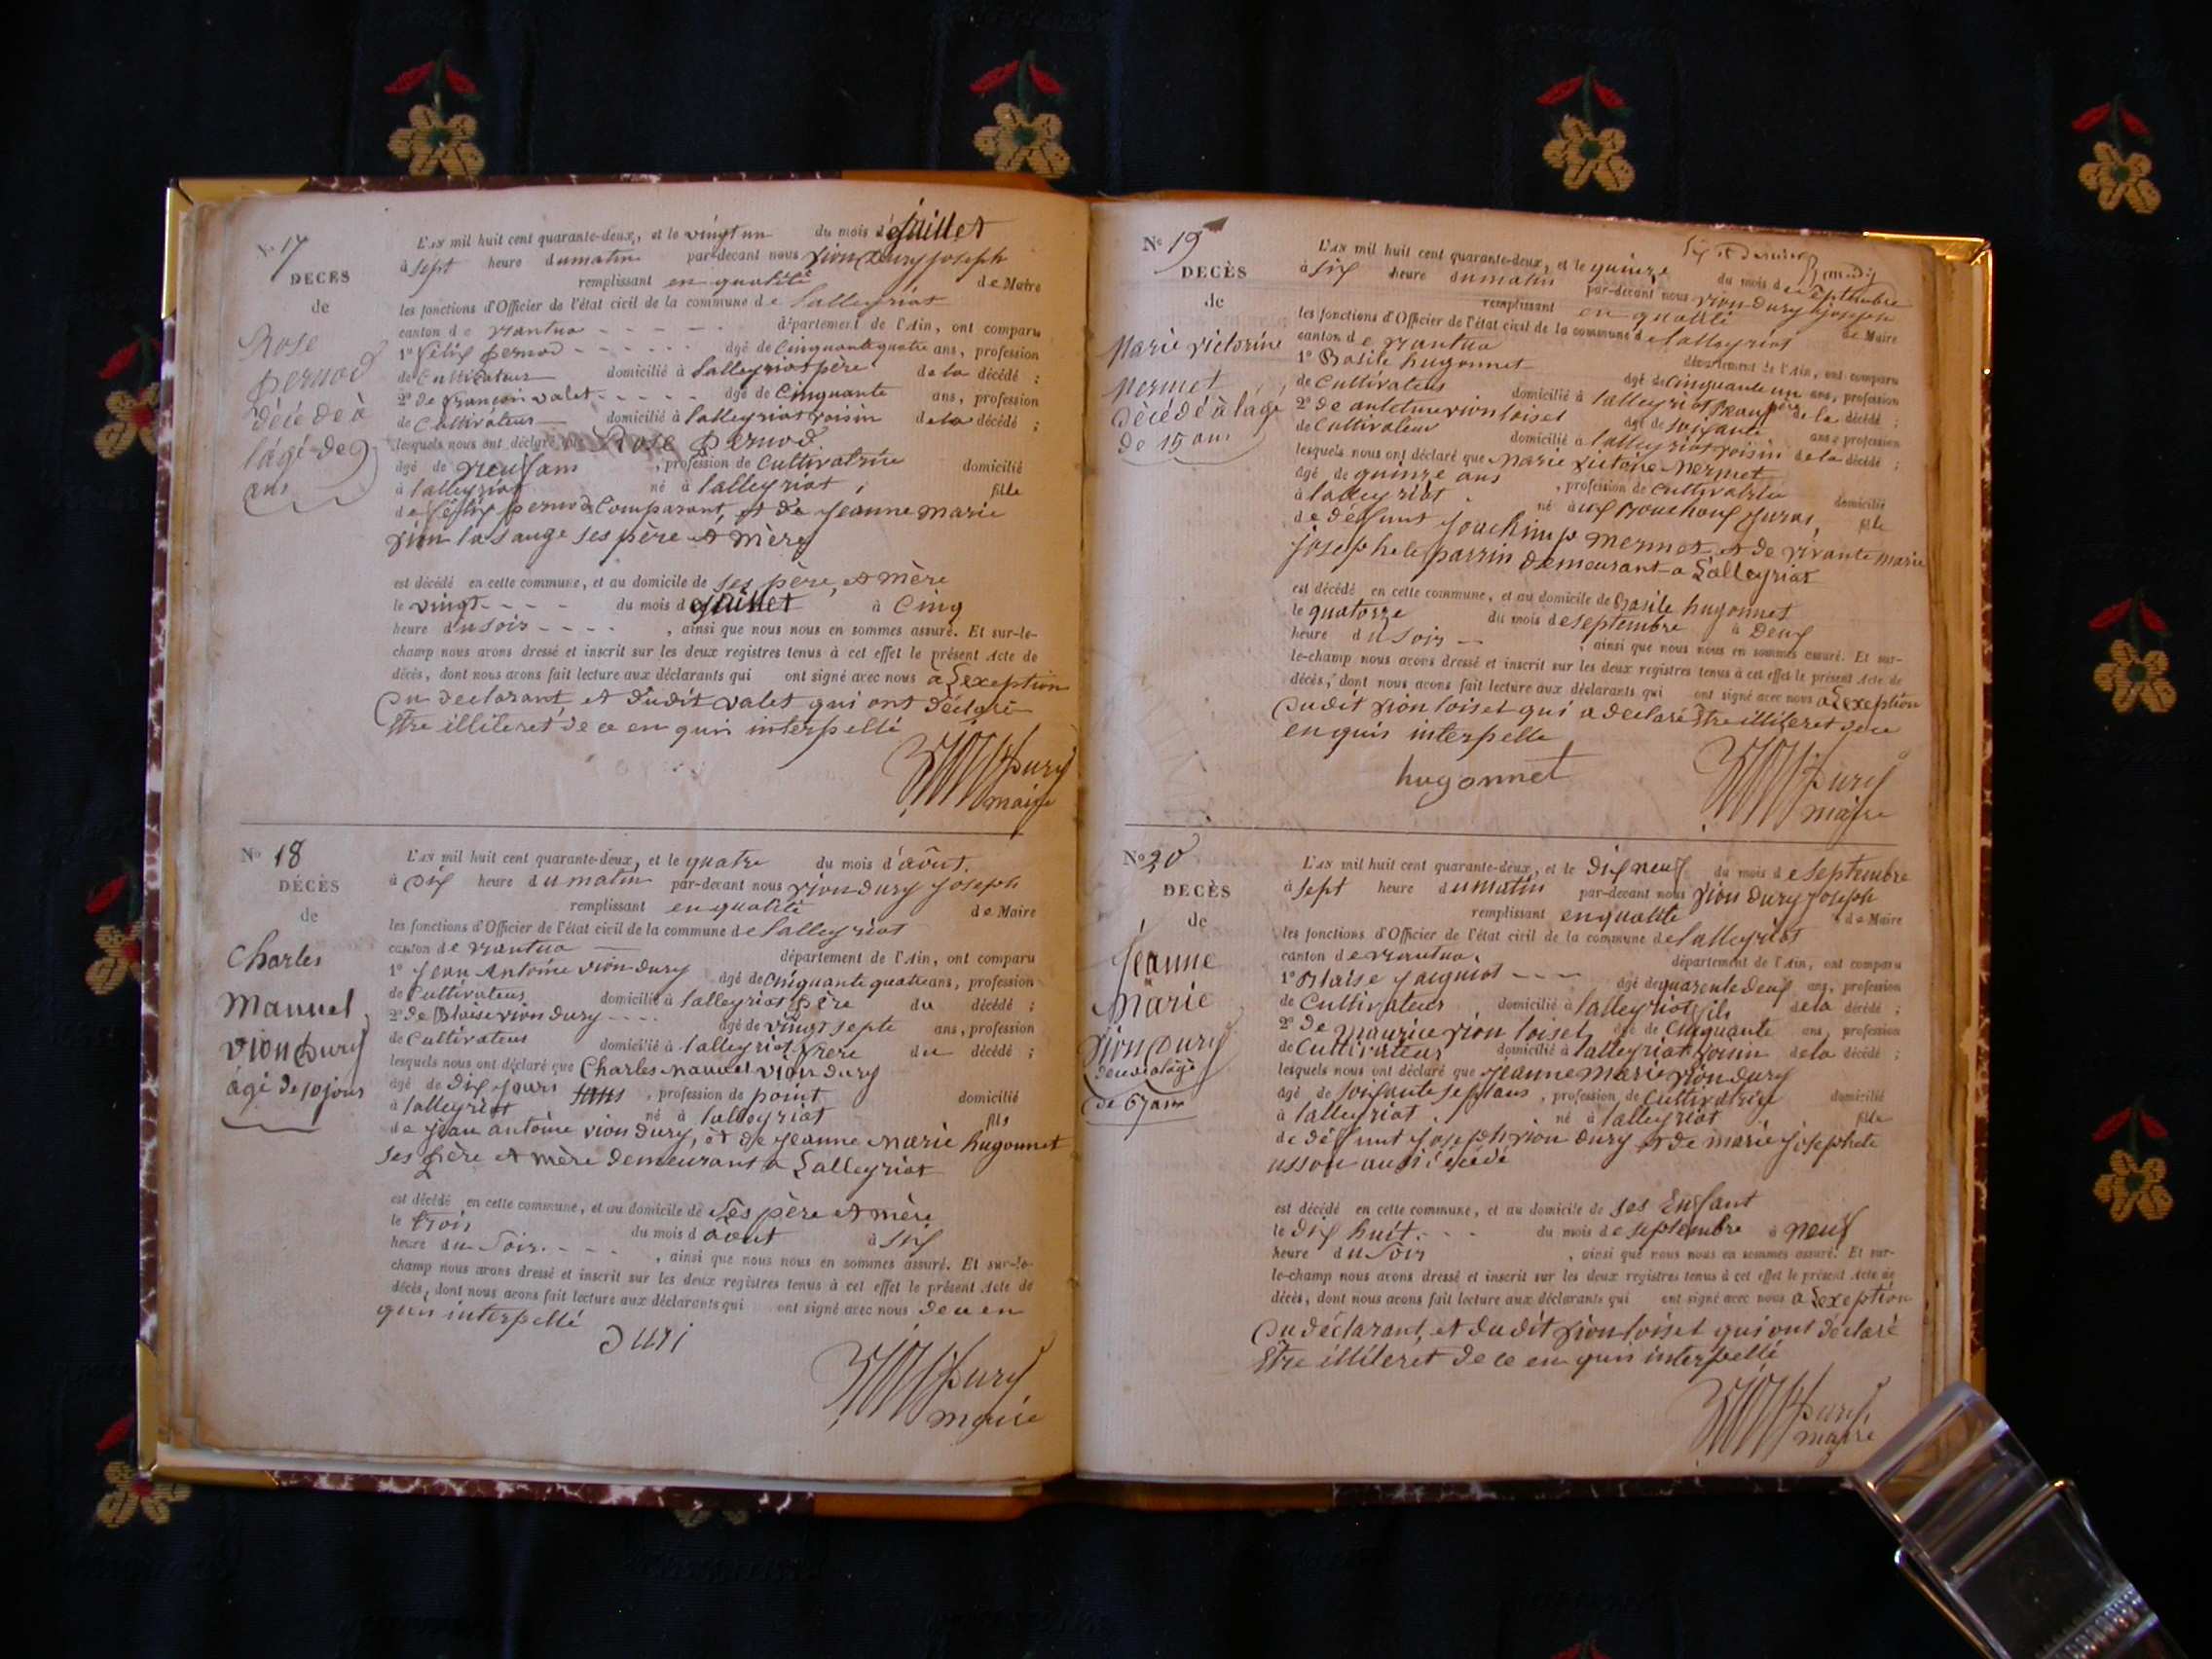 N° 17
DECES
de
Rose
pernod
décédé à
l'âgé de 9
ans
L'AN mil huit cent quarante-deux, et le vingt un du mois de juillet
à sept heure du matin par-devant nous vion Dury joseph
remplissant en qualité de Maire
les fonctions d'Officier de l'état civil de la commune de Lalleyriat
canton de nantua département de l'Ain, ont comparu
1° félix pernod âgé de Cinquante quatre ans, profession
de Cultivateur domicilié à Lalleyriat père de la décédé ;
2° de françois valet âgé de Cinquante ans, profession
de Cultivateur domicilié à lalleyriat voisin de la décédé ;
lesquels nous ont déclaré que Rose pernod
âgé de neuf ans, profession de Cultivatrice domicilié
à lalleyriat né à lalleyriat, fille
de félix pernod Comparant, et de jeanne marie
vion la sauge ses père et mère
est décédé en cette commune, et au domicile de ses père et mère
le vingt du mois de juillet à Cinq
heure du soir, ainsi que nous nous en sommes assuré. Et sur-le-
champ nous avons dressé et inscrit sur les deux registres tenus à cet effet le présent Acte de
décès, dont nous avons fait lecture aux déclarants qui ont signé avec nous a Lexeption
Du declarant et dudit valet qui ont déclaré
être illiteret de ce en quis interpellé
Dury
maire
N° 18
DÉCÈS
de
Charles
Manuel
vion Dury
âgé de 10 jours
L'AN mil huit cent quarante-deux, et le quatre du mois d'août.
à Dix heure du matin par-devant nous vion dury joseph
remplissant en qualité de Maire
les fonctions d'Officier de l'état civil de la commune de Lalleyriat
canton de nantua département de l'Ain, ont comparu
1° jean Antoine vion dury âgé de Cinquante quatre ans, profession
de Cultivateur domicilié à lalleyriat père du décédé ;
2° de Blaise vion dury âgé de vingt septe ans, profession
de Cultivateur domicilié à lalleyriat frère du décédé ;
lesquels nous ont déclaré que Charles manuel vion dury
âgé de dix jours, profession de point domicilié
à lalleyriat né à lalleyriat fils
de jean antoine vion dury, et de jeanne marie hugonnet
ses père et mère demeurant a Lalleyriat
est décédé en cette commune, et au domicile de ses père et mère
le trois du mois d août à six
heure du soir, ainsi que nous nous en sommes assuré. Et sur-le-
champ nous avons dressé et inscrit sur les deux registres tenus à cet effet le présent Acte de
décès, dont nous avons fait lecture aux déclarants qui ont signé avec nous de ce en
quis interpellé
Duri
Dury
maire
N° 19
DECÈS
de
Marie victorine
mermet
décédé à l'age
de 15 ans
L'AN mil huit cent quarante-deux, et le quinze du mois de septembre
à six heure du matin par-devant nous vion dury joseph
remplissant en qualité de Maire
les fonctions d'Officier de l'état civil de la commune de lalleyriat
canton de nantua département de l'Ain, ont comparu
1° Basile hugonnet âgé de Cinquante un ans, profession
de Cultivateur domicilié à lalleyriat beau père de la décédé ;
2° de antoine vion loiset âgé de soixante ans, profession
de Cultivateur domicilié à lalleyriat voisin de la décédé ;
lesquels nous ont déclaré que marie victoire mermet
âgé de quinze ans, profession de Cultivatrice domicilié
à lalleyriat né aux Bouchoux juras, fille
de défunt jouachimp mermet et de vivante marie
josephe le parrin demeurant a Lalleyriat
est décédé en cette commune, et au domicile de Basile hugonnet
le quatorze du mois de septembre à Deux
heure du soir, ainsi que nous nous en sommes assuré. Et sur-
le-champ nous avons dressé et inscrit sur les deux registres tenus à cet effet le présent Acte de
décès, dont nous avons fait lecture aux déclarants qui ont signé avec nous a Lexeption
Dudit vion loiset qui a declaré être illiteret de ce
en quis interpelle
hugonnet
Dury
maire
N° 20
DECÈS
de
jeanne
marie
vion Dury
de 67 ans
L'AN mil huit cent quarante-deux, et le dix neuf du mois de septembre
à sept heure du matin par-devant nous vion dury joseph
remplissant en qualité de Maire
les fonctions d'Officier de l'état civil de la commune de lalleyriat
canton de nantua département de l'Ain, ont comparu
1° Blaise jaiguiot âgé de quarente deux ans, profession
de Cultivateur domicilié à lalleyriat fils de la décédé ;
2° de maurice vion loiset âgé de Cinquante ans, profession
de Cultivateur domicilié à lalleyriat voisin de la décédé ;
lesquels nous ont déclaré que jeanne marie vion dury
âgé de soixante sept ans, profession de Cultivatrice domicilié
à lalleyriat né à lalleyriat fille
de défunt joseph vion dury et de marie josephete
aussi décédé
est décédé en cette commune, et au domicile de ses Enfant
le dix huit du mois de septembre à neuf
heure du soir, ainsi que nous nous en sommes assuré. Et sur-
le-champ nous avons dressé et inscrit sur les deux registres tenus à cet effet le présent Acte de
décès, dont nous avons fait lecture aux déclarants qui ont signé avec nous a Lexeption
Du déclarant, et du dit vion loiset qui ont déclaré
être illiteret de ce en quis interpellé
Dury
maire